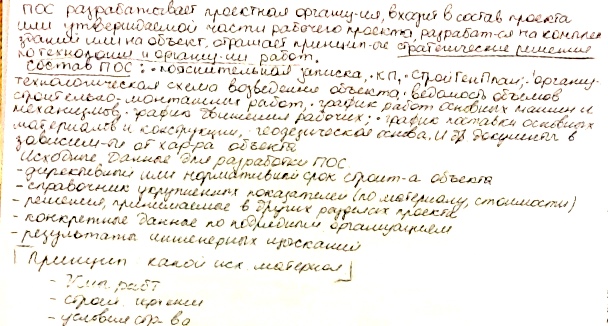 ПОС разрабатывает проектная организ-ия, входит в состав проекта
или утверждаемой части рабочего проекта, разрабат-ся на комплекс
зданий или на объект, отражает принцип-ые стратегические решения
по технологии и организ-ии работ.
Состав ПОС: · пояснительная записка, · КП, · СтройГенПлан; · организ-
технологическая схема возведения объекта · ведомость объемов
строительно-монтажных работ, · график работ основных машин и
механизмов, · график движения рабочих; · график поставки основных
материалов и конструкции, · геодезическая основа, и др документы в
зависим-ти от хар-ра объекта
Исходные данные для разработки ПОС.
- директивный или нормативный срок строит-а объекта
- справочник укрупнённых показателей (по материалу, стоимости)
- решения, принимаемое в других разделах проекта
- конкретные данные по подрядным организациям
- результаты инженерных изысканий
[Принцип какой исх. материал]
- работ
- строит.
- условия стр-ва